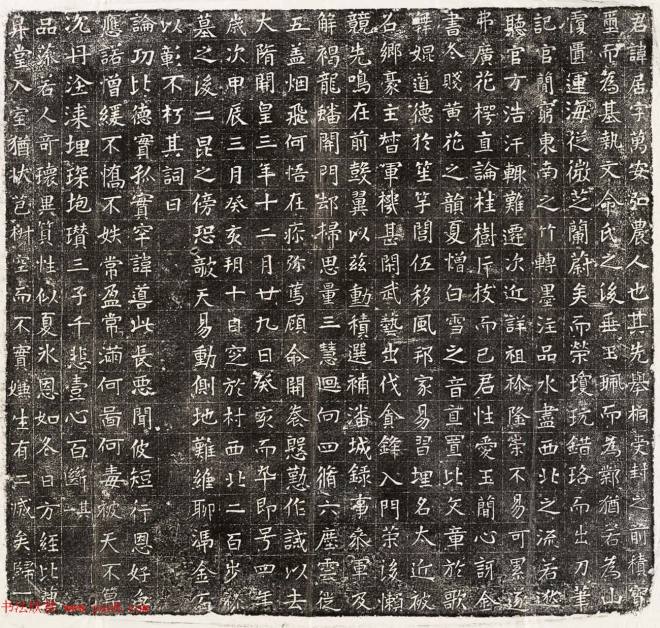 君諱居字萬安弘農人也其先舉桐受封之前積寶
璽而為基執文命氏之後垂玉珮而為鄰猶若為山
覆匱運海從微芝蘭蔚矣而榮瓊玩錯珞而出刀筆
記官簡窮東南之竹轉墨注品水盡西北之流若遊
聽官方浩汗輙難遷次近詳祖祢隆葉不易可累逐
弗廣花楞直論桂樹片枝而已君性愛玉簡心訝金
書冬賤黄花之韻夏憎白雪之音直置比欠章於歌
舞娓道德於笙竽閭伍移風邦家易習埋名太近被
名鄉豪主督軍機甚閑武藝出伐貪鋒入門榮後懶
競先鳴在前鼓翼以兹動積選補潘城録事叅軍及
解褐龍蟠開門却掃思量三慧迴向四脩六塵雲從
五盖烟飛何悟在疹弥篤顧命開卷慇懃作誡以去
大隋開皇三年十二月廿九日癸亥而卒即号四年
歲次甲辰三月癸亥朔十日窆於村西北二百步
墓之後二昆之傍恐敲天易動側地難維聊馮金石
以彰不朽其詞曰
論功比德實孤實宰諱善此長惡聞彼短行恩好
應諾憎緩不憍不妷常盈常滿何啚何毒彼天不
沉丹淦漆埋琛抱瓚三子千悲壹心百斷其
品藻若人奇瓌異質性似夏氷恩如冬日方經比
昇堂入室猶状苞樹空而不實嫌生有二咸矣歸一
书法欣赏